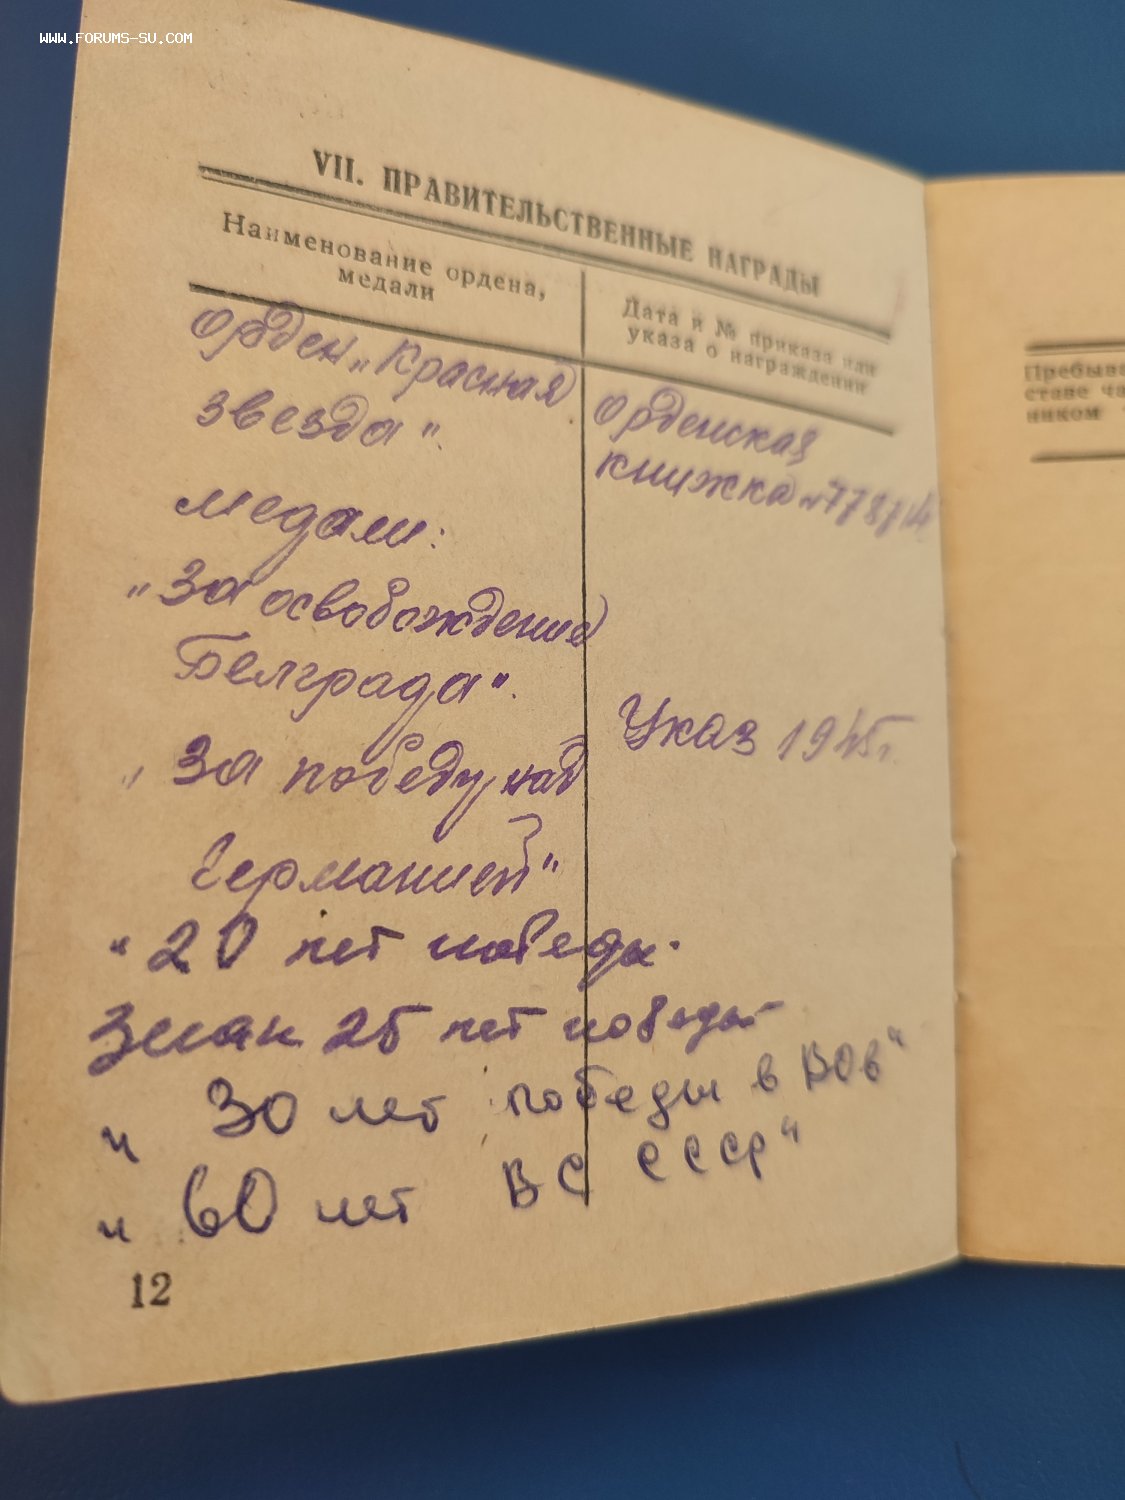 WWW.FORUMS-SU.COM
VII. ПРАВИТЕЛЬСТВЕННЫЕ НАГРАДЫ
Наименование ордена,
медали
Дата и № приказа или
указа о награждении
орден „Красная
звезда".
орденская
книжка
медали:
„За освобождение
Белграда".
Указ 1945г.
„За победу над
Германией"
" 20 лет победы.
Знак 25 лет победы
" 30 лет победы в ВОв"
" 60 лет ВС СССР"
12
Пребыва
ставе ча
ником